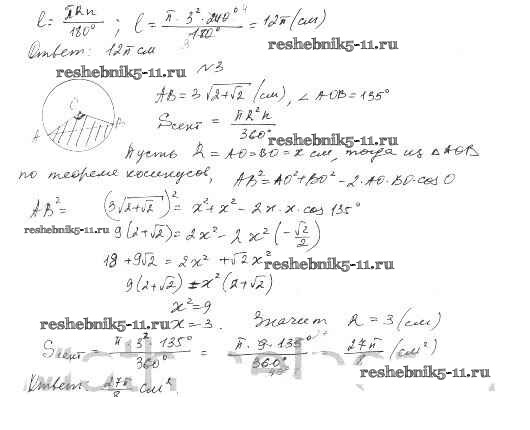 l = πRn/180° ; l = π · 3² · 240°/180° = 12π (см)
Ответ: 12π см
reshebnik5-11.ru
№3
AB = 3√(2+√2) (см), ∠AOB = 135°
Sсект = πR²n/360°
reshebnik5-11.ru
Пусть R = AO = BO = x см, тогда из △AOB
по теореме косинусов, AB² = AO² + BO² - 2·AO·BO·cos O
AB² = (3√(2+√2))² = x² + x² - 2x·x·cos 135°
reshebnik5-11.ru 9(2+√2) = 2x² - 2x²(-√2/2)
18 + 9√2 = 2x² + √2x²
reshebnik5-11.ru
9(2+√2) = x²(2+√2)
x² = 9
reshebnik5-11.ru x = 3. Значит R = 3 (см)
Sсект = π · 3² · 135°/360° = π · 9 · 135°/360° = 27π/8 (см²)
reshebnik5-11.ru
Ответ: 27π/8 см².